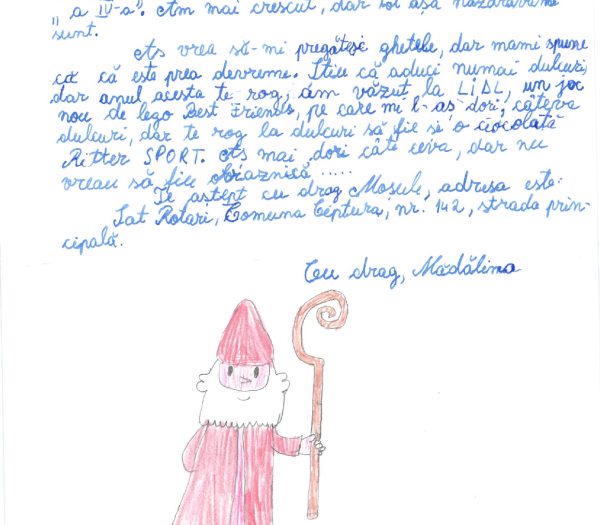 „a IV-a”. Am mai crescut, dar tot așa năzdrăvană
sunt.
Aș vrea să-mi pregătesc ghetele, dar mami spune
că că este prea devreme. Știu că aduci numai dulciuri,
dar anul acesta te rog, am văzut la LIDL, un joc
nou de lego Best Friends, pe care mi l-aș dori, câteva
dulciuri, dar te rog la dulciuri să fie și o ciocolată
Ritter SPORT. Aș mai dori câte ceva, dar nu
vreau să fiu obraznică .....
Te aștept cu drag Moșule, adresa este:
Sat Rotari, Comuna Ceptura, nr. 142, strada prin-
cipală.
Cu drag, Mădălina